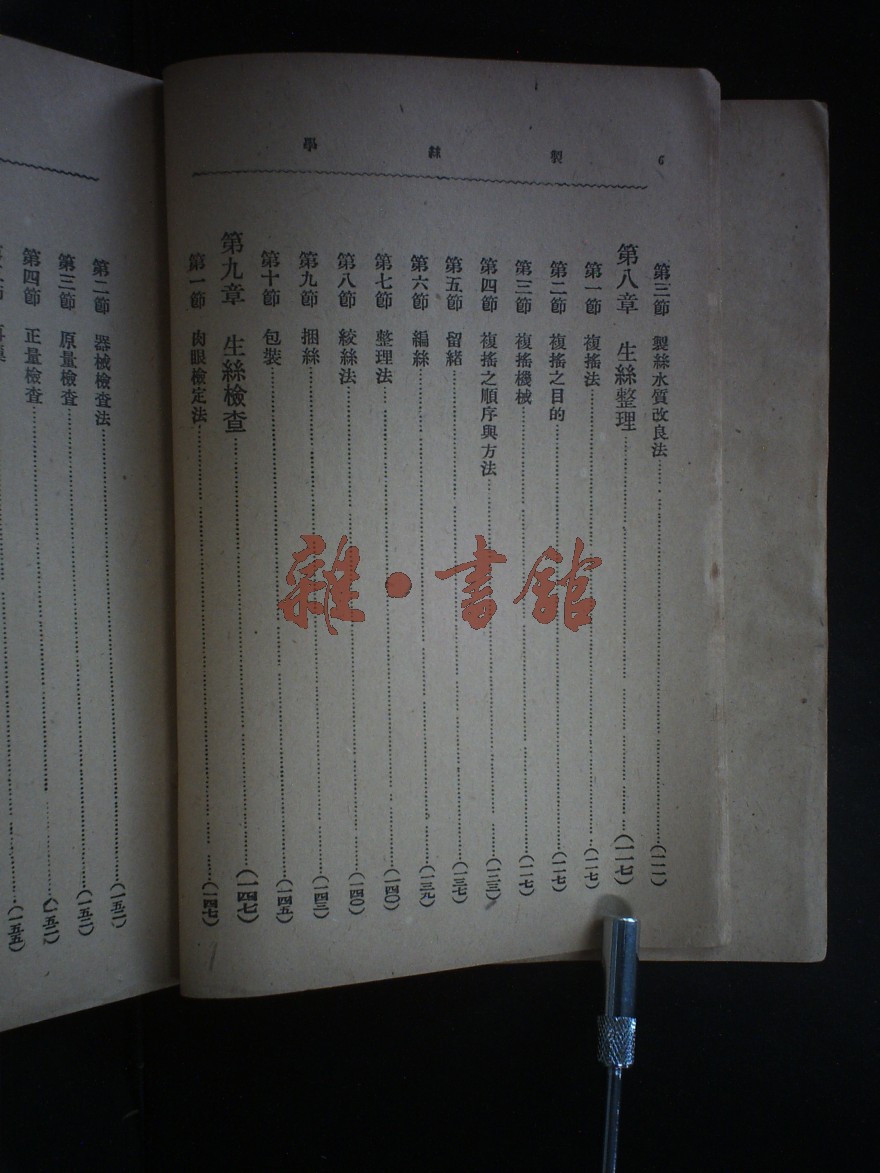 製絲學
6
第三節 製絲水質改良法(一一一)
第八章 生絲整理(一一七)
第一節 複搖法(一一七)
第二節 複搖之目的(一一七)
第三節 複搖機械(一一七)
第四節 複搖之順序與方法(一三三)
第五節 留緒(一三七)
第六節 編絲(一三九)
第七節 整理法(一四〇)
第八節 絞絲法(一四〇)
第九節 捆絲(一四三)
第十節 包裝(一四五)
第九章 生絲檢查(一四七)
第一節 肉眼檢定法(一四七)
第二節 器械檢查法(一五二)
第三節 原量檢查(一五二)
第四節 正量檢查(一五二)
(一五五)
雜·書館